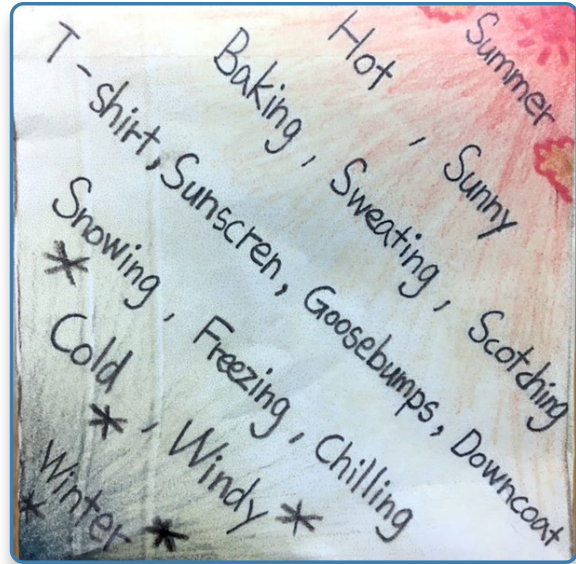 Summer
Hot , Sunny
Baking , Sweating , Scotching
T-shirt, Sunscren, Goosebumps, Downcoat
Snowing , Freezing , Chilling
Cold , Windy
Winter